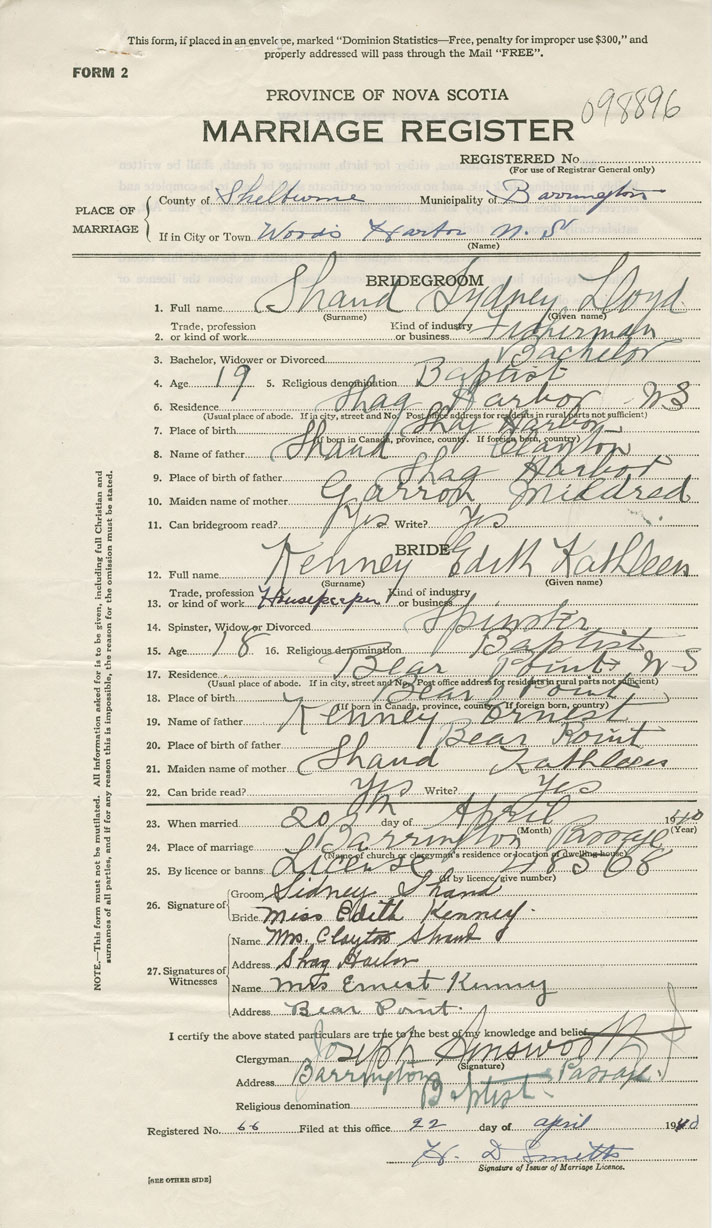 This form, if placed in an envelope, marked "Dominion Statistics—Free, penalty for improper use $300," and
properly addressed will pass through the Mail "FREE".
FORM 2
PROVINCE OF NOVA SCOTIA
098896
MARRIAGE REGISTER
REGISTERED No.
(For use of Registrar General only)
PLACE OF MARRIAGE
County of Shelburne Municipality of Barrington
If in City or Town Woods Harbor N. S.
(Name)
BRIDEGROOM
1. Full name Shand Sydney Lloyd
(Surname) (Given name)
2. Trade, profession or kind of work Kind of industry or business Fisherman
3. Bachelor, Widower or Divorced Bachelor
4. Age 19 5. Religious denomination Baptist
6. Residence Shag Harbor NS
(Usual place of abode. If in city, street and No. Post office address for residents in rural parts not sufficient)
7. Place of birth Shag Harbor
(If born in Canada, province, county. If foreign born, country)
8. Name of father Shand Clayton
9. Place of birth of father Shag Harbor
10. Maiden name of mother Garron Mildred
11. Can bridegroom read? Yes Write? Yes
BRIDE
12. Full name Kenney Edith Kathleen
(Surname) (Given name)
13. Trade, profession or kind of work Housekeeper Kind of industry or business
14. Spinster, Widow or Divorced Spinster
15. Age 18 16. Religious denomination Baptist
17. Residence Bear Point, N S
(Usual place of abode. If in city, street and No. Post office address for residents in rural parts not sufficient)
18. Place of birth Bear Point,
(If born in Canada, province, county. If foreign born, country)
19. Name of father Kenney Ernest
20. Place of birth of father Bear Point
21. Maiden name of mother Shand Kathleen
22. Can bride read? Yes Write? Yes
23. When married 20th day of April 1940
(Month) (Year)
24. Place of marriage Barrington Passage
(Name of church or clergyman's residence or location of dwelling house)
25. By licence or banns License
(If by licence give number)
26. Signature of Groom Sidney Shand
Bride Miss Edith Kenney.
27. Signatures of Witnesses
Name Mrs. Clayton Shand
Address Shag Harbor
Name Mrs Ernest Kenney
Address Bear Point.
I certify the above stated particulars are true to the best of my knowledge and belief.
Clergyman Joseph Ainsworth
(Signature)
Address Barrington Passage
Religious denomination Baptist
Registered No. 66 Filed at this office 22 day of april 1940
H. D Smith
Signature of Issuer of Marriage Licence.
[SEE OTHER SIDE]
NOTE.—This form must not be mutilated. All information asked for is to be given, including full Christian and
surnames of all parties, and if for any reason this is impossible, the reason for the omission must be stated.